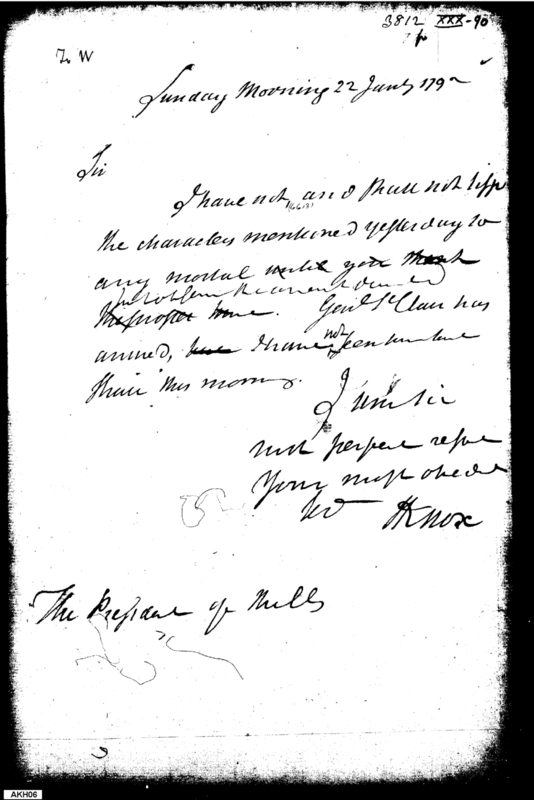 3812 XXX-90
T W
Sunday Morning 22 Jany 179
Sir
I have not, and shall not lisp
the characters mentioned yesterday to
any mortal until you think
the proper time. Genl St Clair has
arrived, but I have not seen him but
shall this morning.
I am Sir
with perfect respe
Your most obedt
Sv
HKnox
The President of the US
AKH06